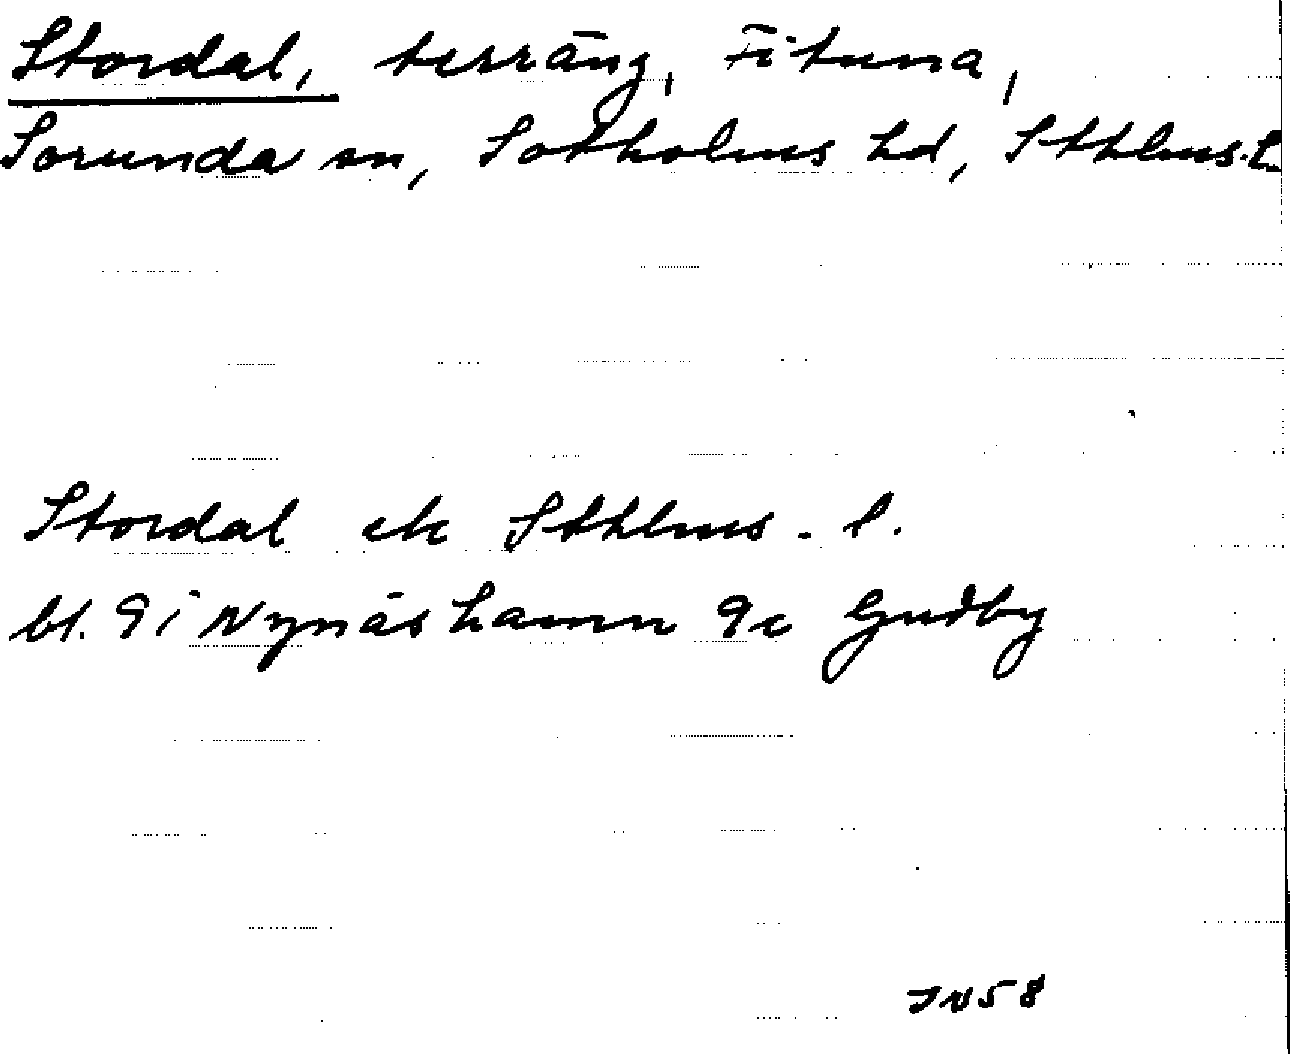 Stordal, terräng, Fituna,
Sorunda sn, Sotholms hd, Sthlms.l.
Stordal ek Sthlms. l.
bl. 9i Nynäshamn 9c Gudby
JN58